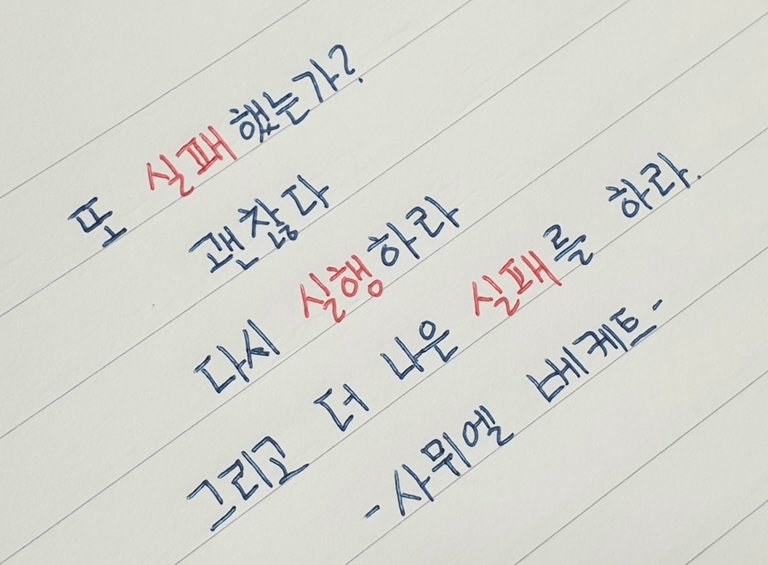 또 실패했는가?
괜찮다
다시 실행하라
그리고 더 나은 실패를 하라.
-사뮈엘 베케트-